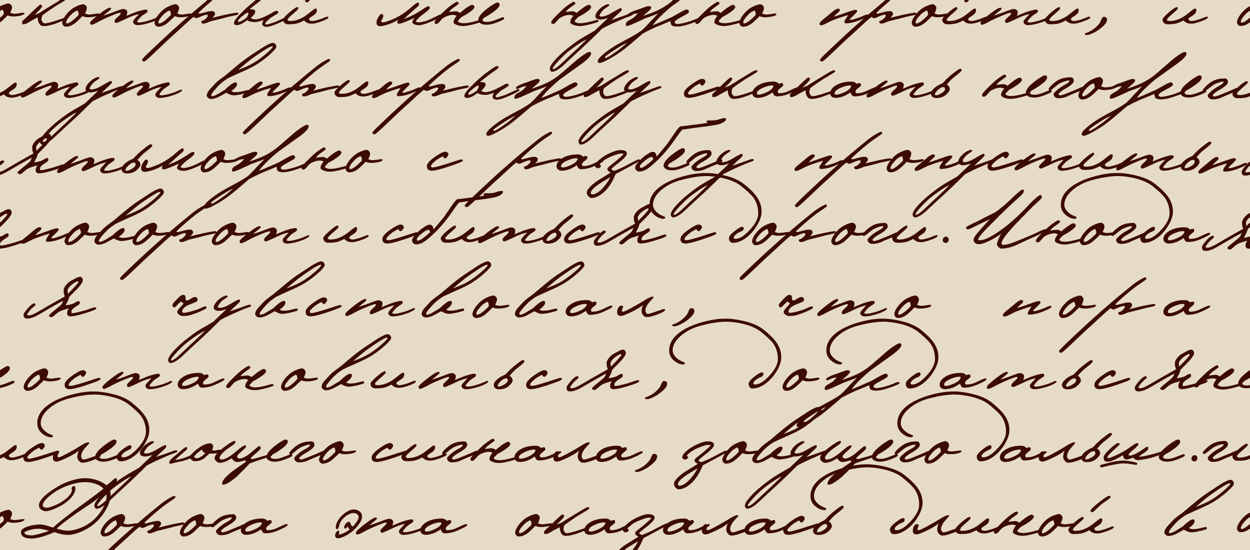 который мне нужно пройти, и
тут вприпрыжку скакать негоже
ять можно с разбегу пропустить
поворот и сбиться с дороги. Иногда я
я чувствовал, что пора
остановиться, дождаться не
следующего сигнала, зовущего дальше.
Дорога эта оказалась длиной в